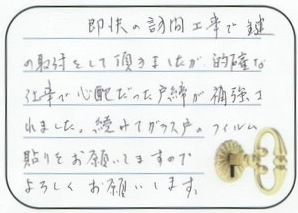 即決の訪問工事で鍵
の取付をして頂きましたが、的確な
仕事で心配だった戸締が補強さ
れました。続けてガラス戸のフィルム
貼りをお願いしますので
よろしくお願いします。